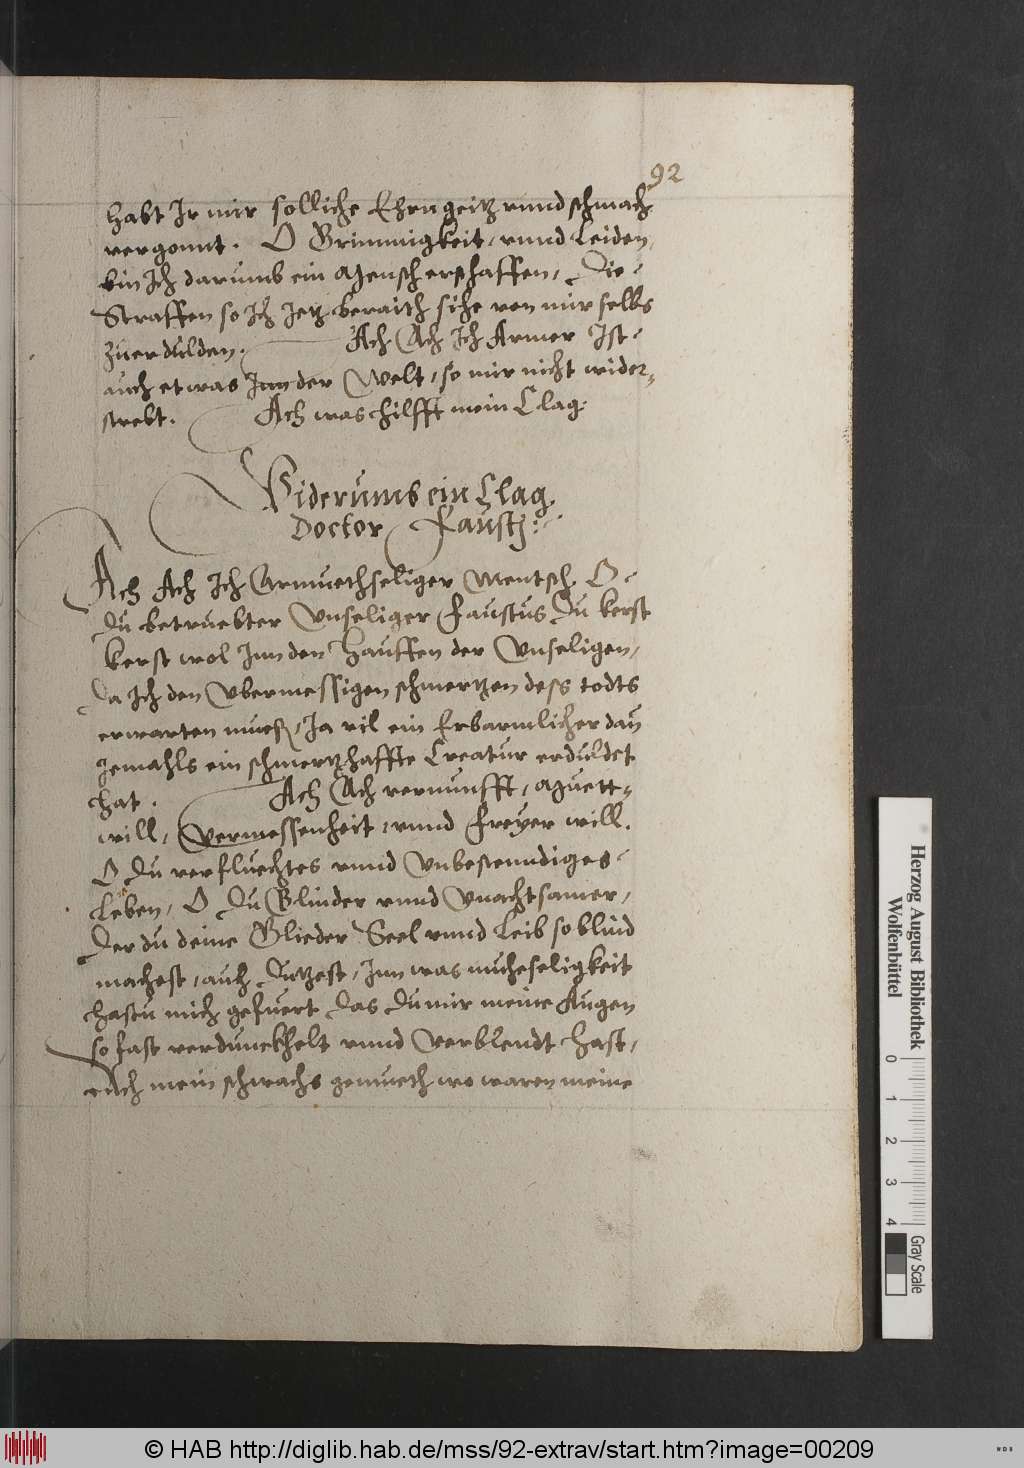 92
habt Ir mir solliche Ehrngeitz vnnd schmach
vergonnt. O Grimmigkeit, vnnd Leiden,
bin Ich darumb ein Mensch erschaffen, Die
Straffen so Ich Jetz beraith sihe von mir selbs
zuerdulden. Ach Ach Ich Armer Ist
auch etwas Inn der Welt, so mir nicht wider-
strebt. Ach was hilfft mein Clag.
Widerumb ein Clag
Doctor Faustj:
Ach Ach Ich Armuethseliger Mentsch. O
Du betruebter Vnseliger Faustus Du kerst
kerst wol Inn den Hauffen der Vnseligen,
Da Ich den Vbermessigen schmertzen dess todts
erwarten mueß, Ja vil ein Erbarmlicher dan
Jemahls ein schmertzhaffte Creatur erduldet
hat. Ach Ach vernunfft, Muett-
will, Vermessenheit, vnnd Freyer will.
O Du verfluechtes vnnd Vnbestenndiges
Leben, O Du Blinder vnnd Vnachtsamer,
Der du deine Glieder Seel vnnd Leib so blind
machest, auch Dutzest, Inn was muheseligkeit
hastu mich gefuert Das Du mir meine Augen
so fast verdunckhelt vnnd Verblendt hast,
Ach mein schwachs gemueth wo waren meine
Herzog August Bibliothek
Wolfenbüttel
0 1 2 3 4
Gray Scale
© HAB http://diglib.hab.de/mss/92-extrav/start.htm?image=00209
WDB